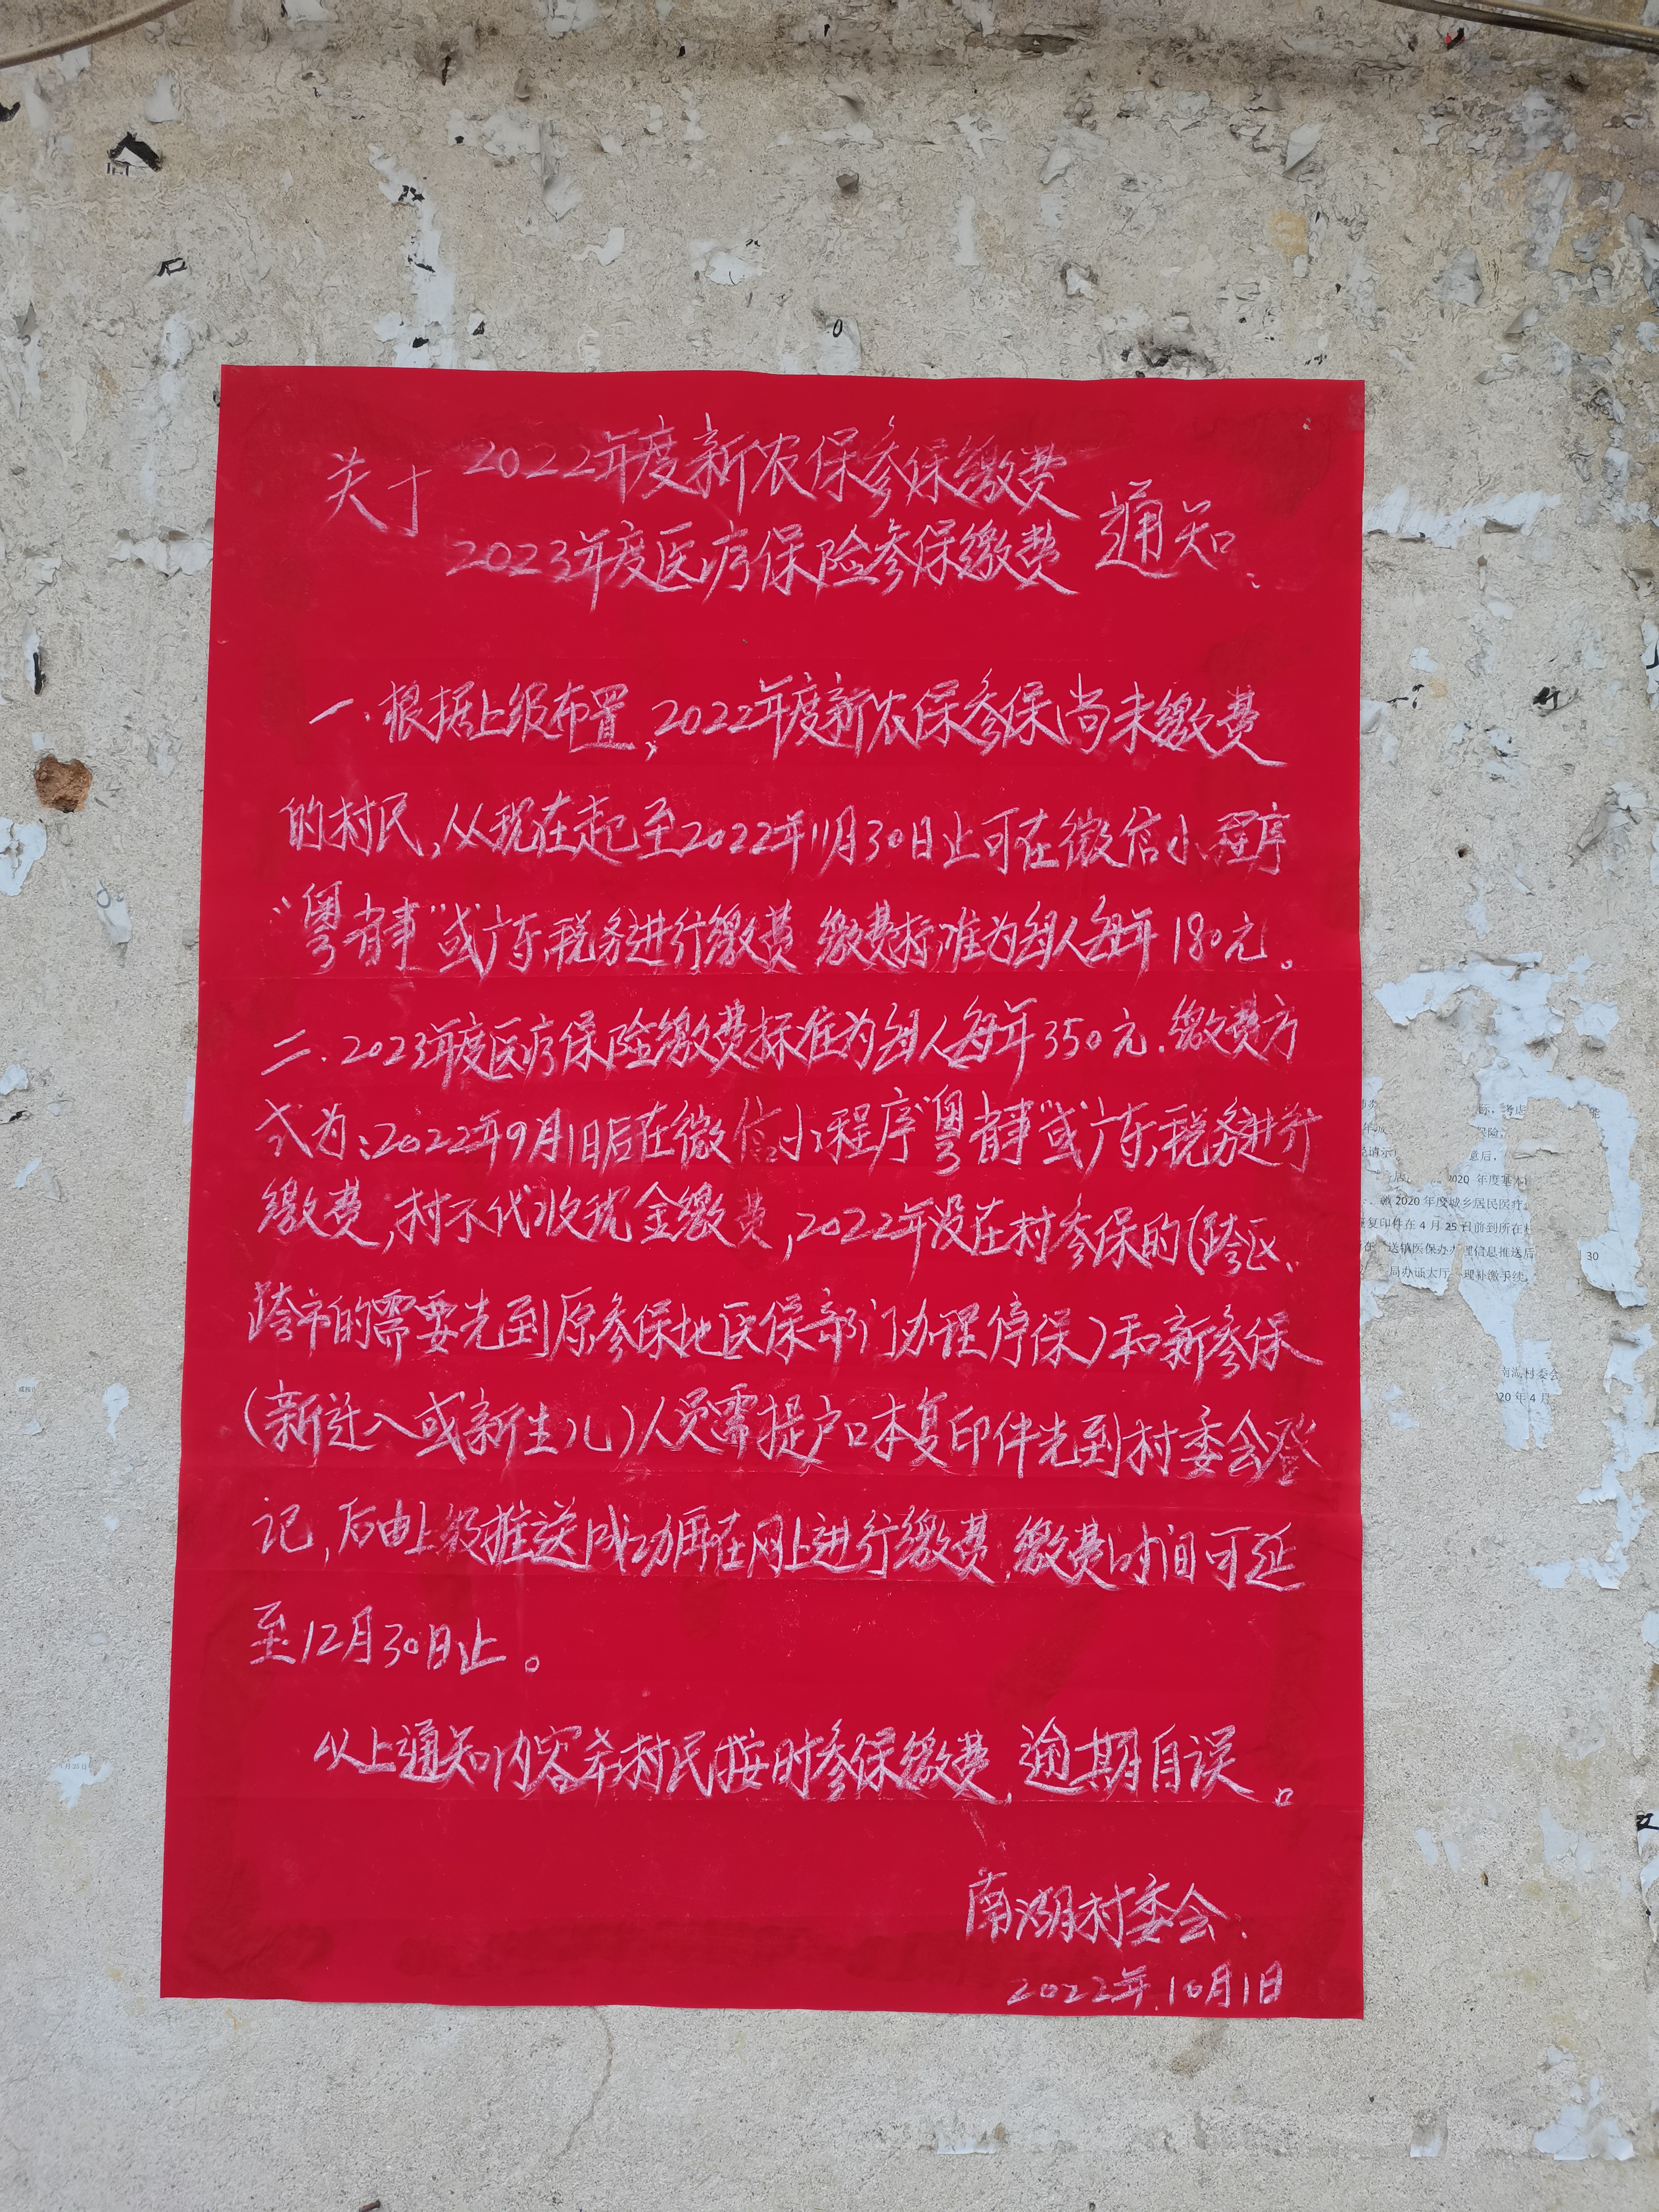 关于
2022年度新农保参保缴费
2023年度医疗保险参保缴费
通知:
一.根据上级布置,2022年度新农保参保尚未缴费
的村民,从现在起至2022年11月30日止可在微信小程序
“粤省事”或广东税务进行缴费 缴费标准为每人每年180元。
二.2023年度医疗保险缴费标准为每人每年350元.缴费方
式为:2022年9月1日后在微信小程序“粤省事”或广东税务进行
缴费,村不代收现金缴费,2022年没在村参保的(跨区、
跨市的需要先到原参保地医保部门办理停保)和新参保
(新迁入或新生儿)人员需提户口本复印件先到村委会登
记,后由上级推送成功再在网上进行缴费,缴费时间可延
至12月30日止。
以上通知内容希村民按时参保缴费,逾期自误。
南湖村委会.
2022年.10月1日
2020 年度基本
2020 年度城乡居民医疗
复印件在 4 月 25 日前到所在村
送镇医保办办理信息推送后
30
局办证大厅 理补缴手续
南湖村委会
20 年 4 月